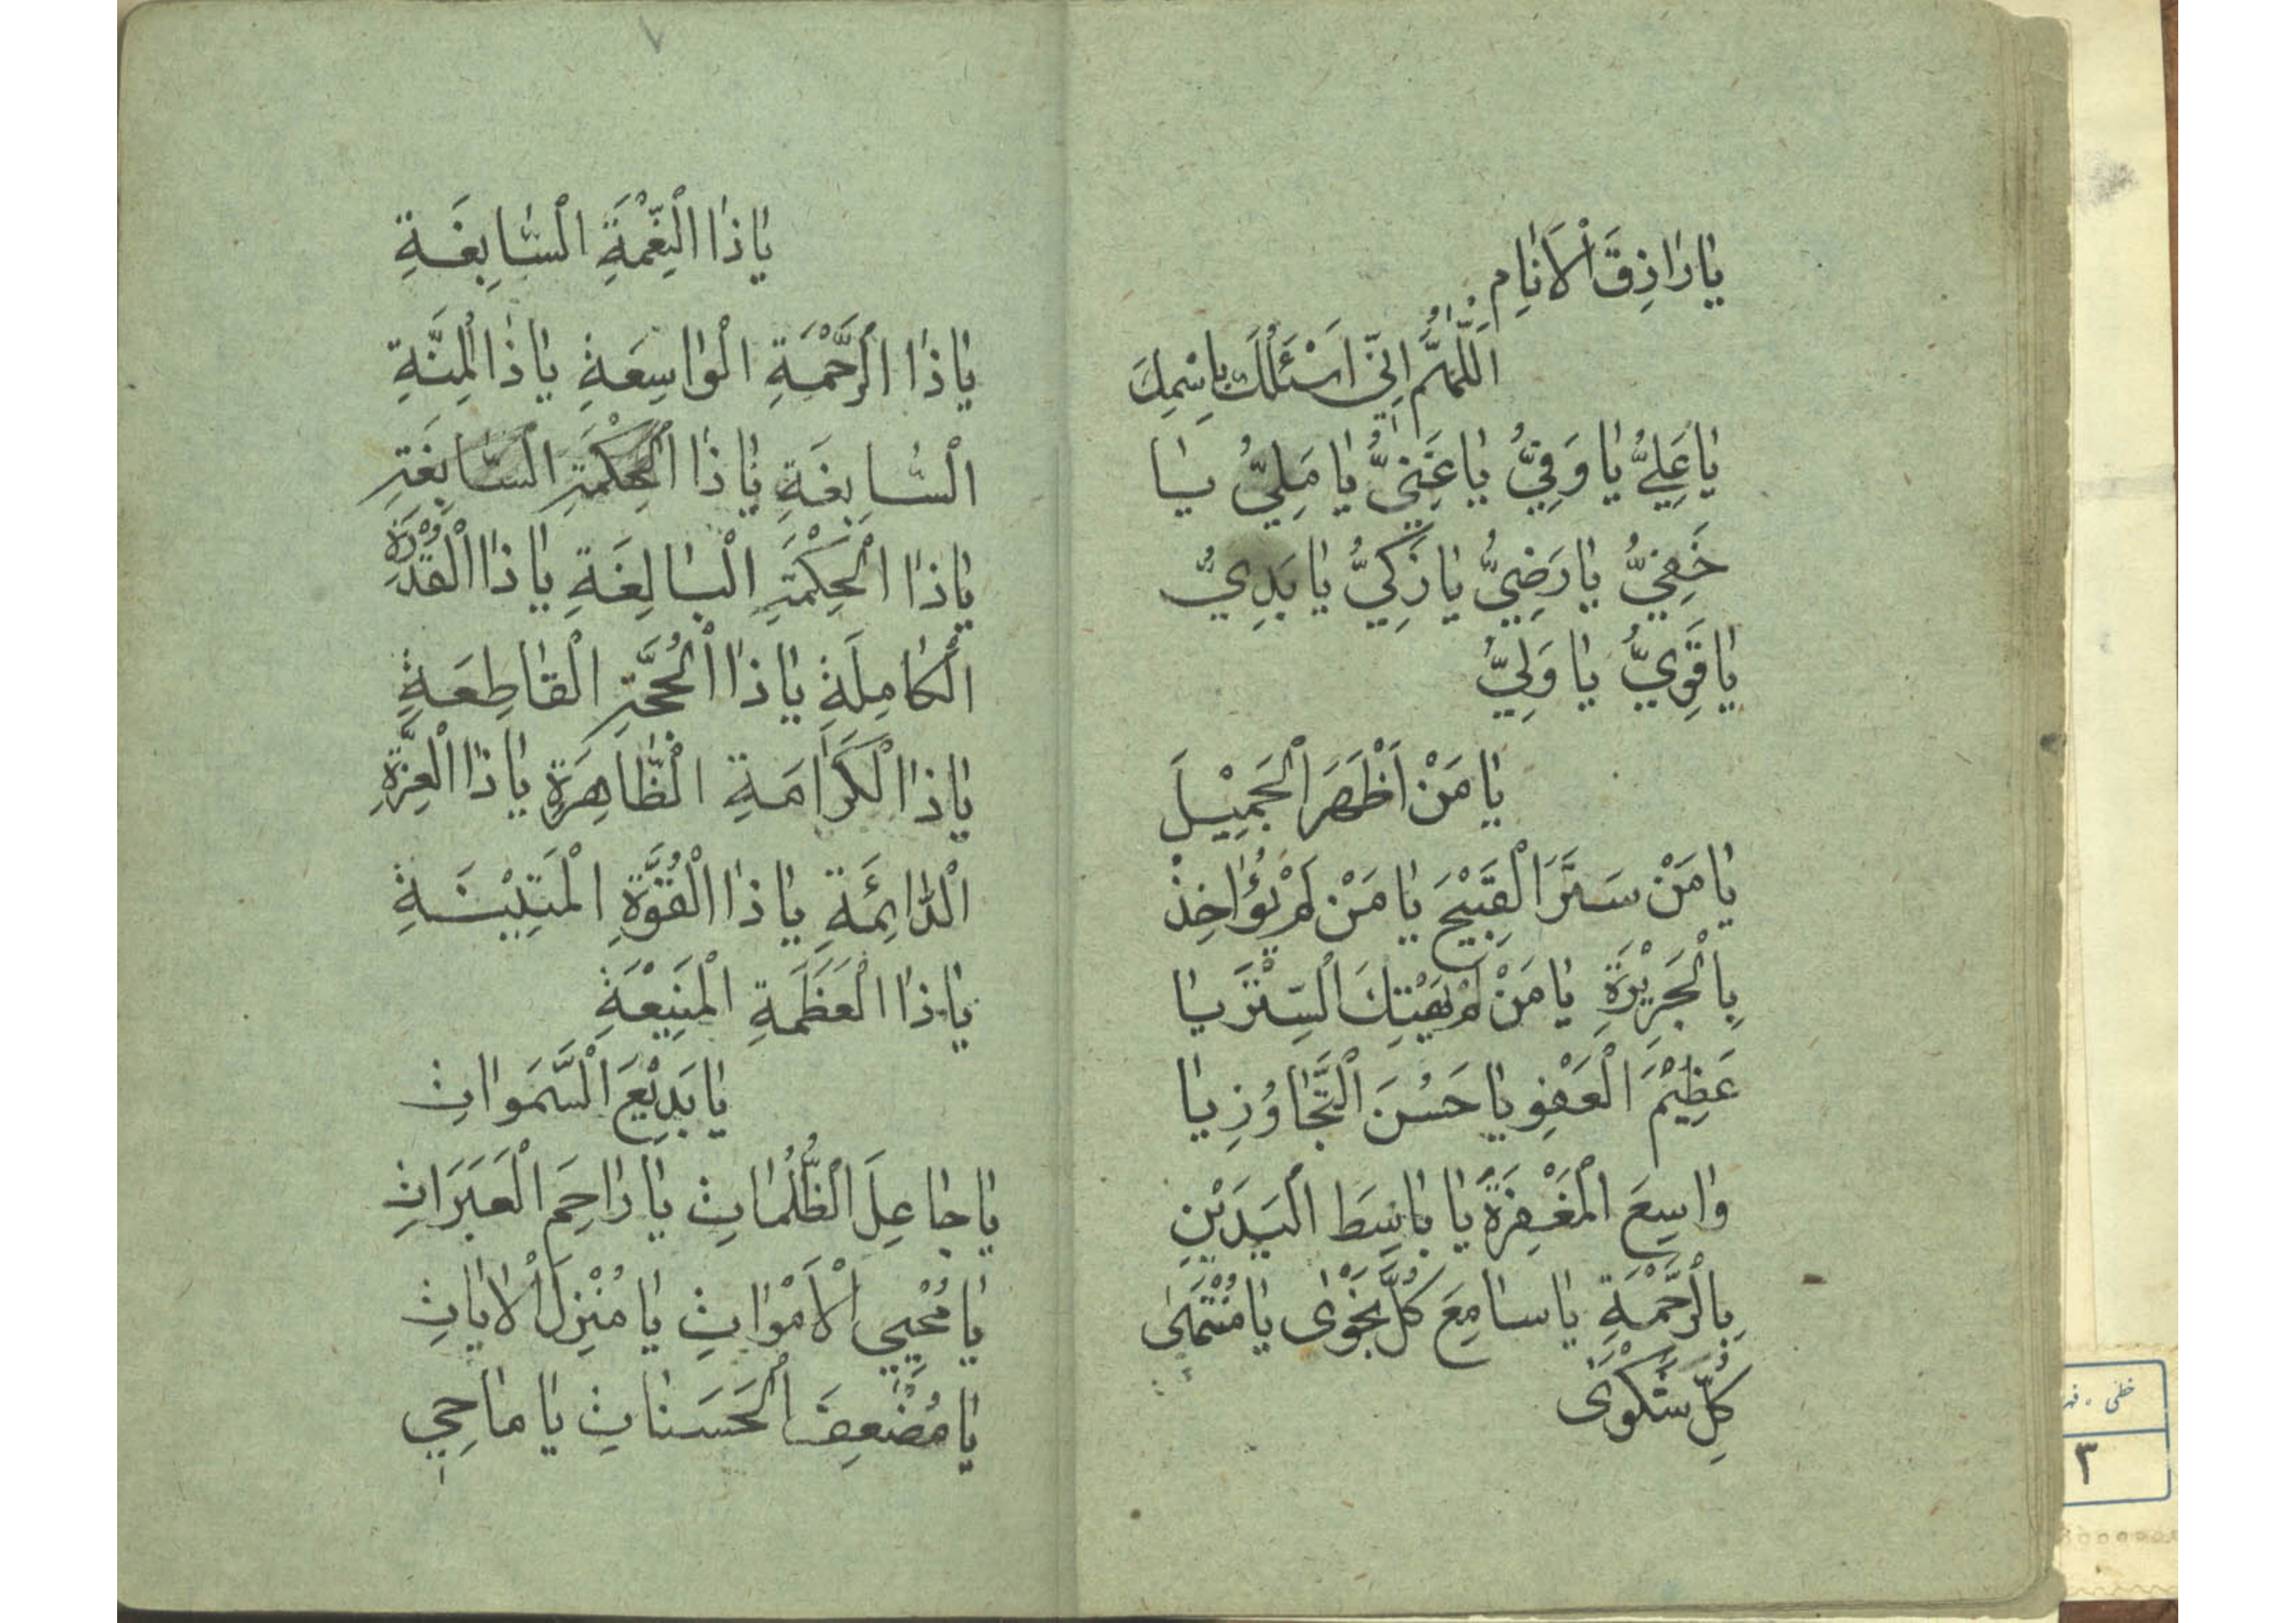 يٰا رٰازِقَ الْاَنٰامِ
اَللّٰهُمَّ اِنّي اَسْئَلُكَ بِاسْمِكَ
يٰا عَلِيُّ يٰا وَفِيُّ يٰا غَنِيُّ يٰا مَلِيُّ يٰا
خَفِيُّ يٰا رَضِيُّ يٰا زَكِيُّ يٰا بَدِيُّ
يٰا قَوِيُّ يٰا وَلِيُّ
يٰا مَنْ اَظْهَرَ الْجَمِيْلَ
يٰا مَنْ سَتَرَ الْقَبِيْحَ يٰا مَنْ لَمْ يُؤٰاخِذْ
بِالْجَرِيْرَةِ يٰا مَنْ لَمْ يَهْتِكَ السِّتْرَ يٰا
عَظِيْمَ الْعَفْوِ يٰا حَسُنَ التَّجٰاوُزِ يٰا
وٰاسِعَ الْمَغْفِرَةِ يٰا بٰاسِطَ الْيَدَيْنِ
بِالْرَّحْمَةِ يٰا سٰامِعَ كُلِّ نَجْوٰى يٰا مُنْتَهىٰ
كُلِّ شَكْوىٰ
يٰا ذَا النِّعْمَةِ السّٰابِغَةِ
يٰا ذَا الرَّحْمَةِ الْوٰاسِعَةِ يٰا ذَا الْمِنَّةِ
السّٰابِغَةِ يٰا ذَا الْحِكْمَةِ السّٰابِغَةِ
يٰا ذَا الْحِكْمَةِ الْبٰالِغَةِ يٰا ذَا الْقُدْرَةِ
الْكٰامِلَةِ يٰا ذَا الْحُجَّةِ الْقٰاطِعَةِ
يٰا ذَا الْكَرٰامَةِ الظّٰاهِرَةِ يٰا ذَا الْعِزَّةِ
الدّٰائِمَةِ يٰا ذَا الْقُوَّةِ الْمَتِيْنَةِ
يٰا ذَا الْعَظَمَةِ الْمَنِيْعَةِ
يٰا بَدِيْعَ السَّمَوٰاتِ
يٰا جٰاعِلَ الظُّلُمٰاتِ يٰا رٰاحِمَ الْعَبَرٰاتِ
يٰا مُحْيِيَ الْاَمْوٰاتِ يٰا مُنْزِلَ الْاٰيٰاتِ
يٰا مُضْعِفَ الْحَسَنٰاتِ يٰا مٰاحِيَ
٣